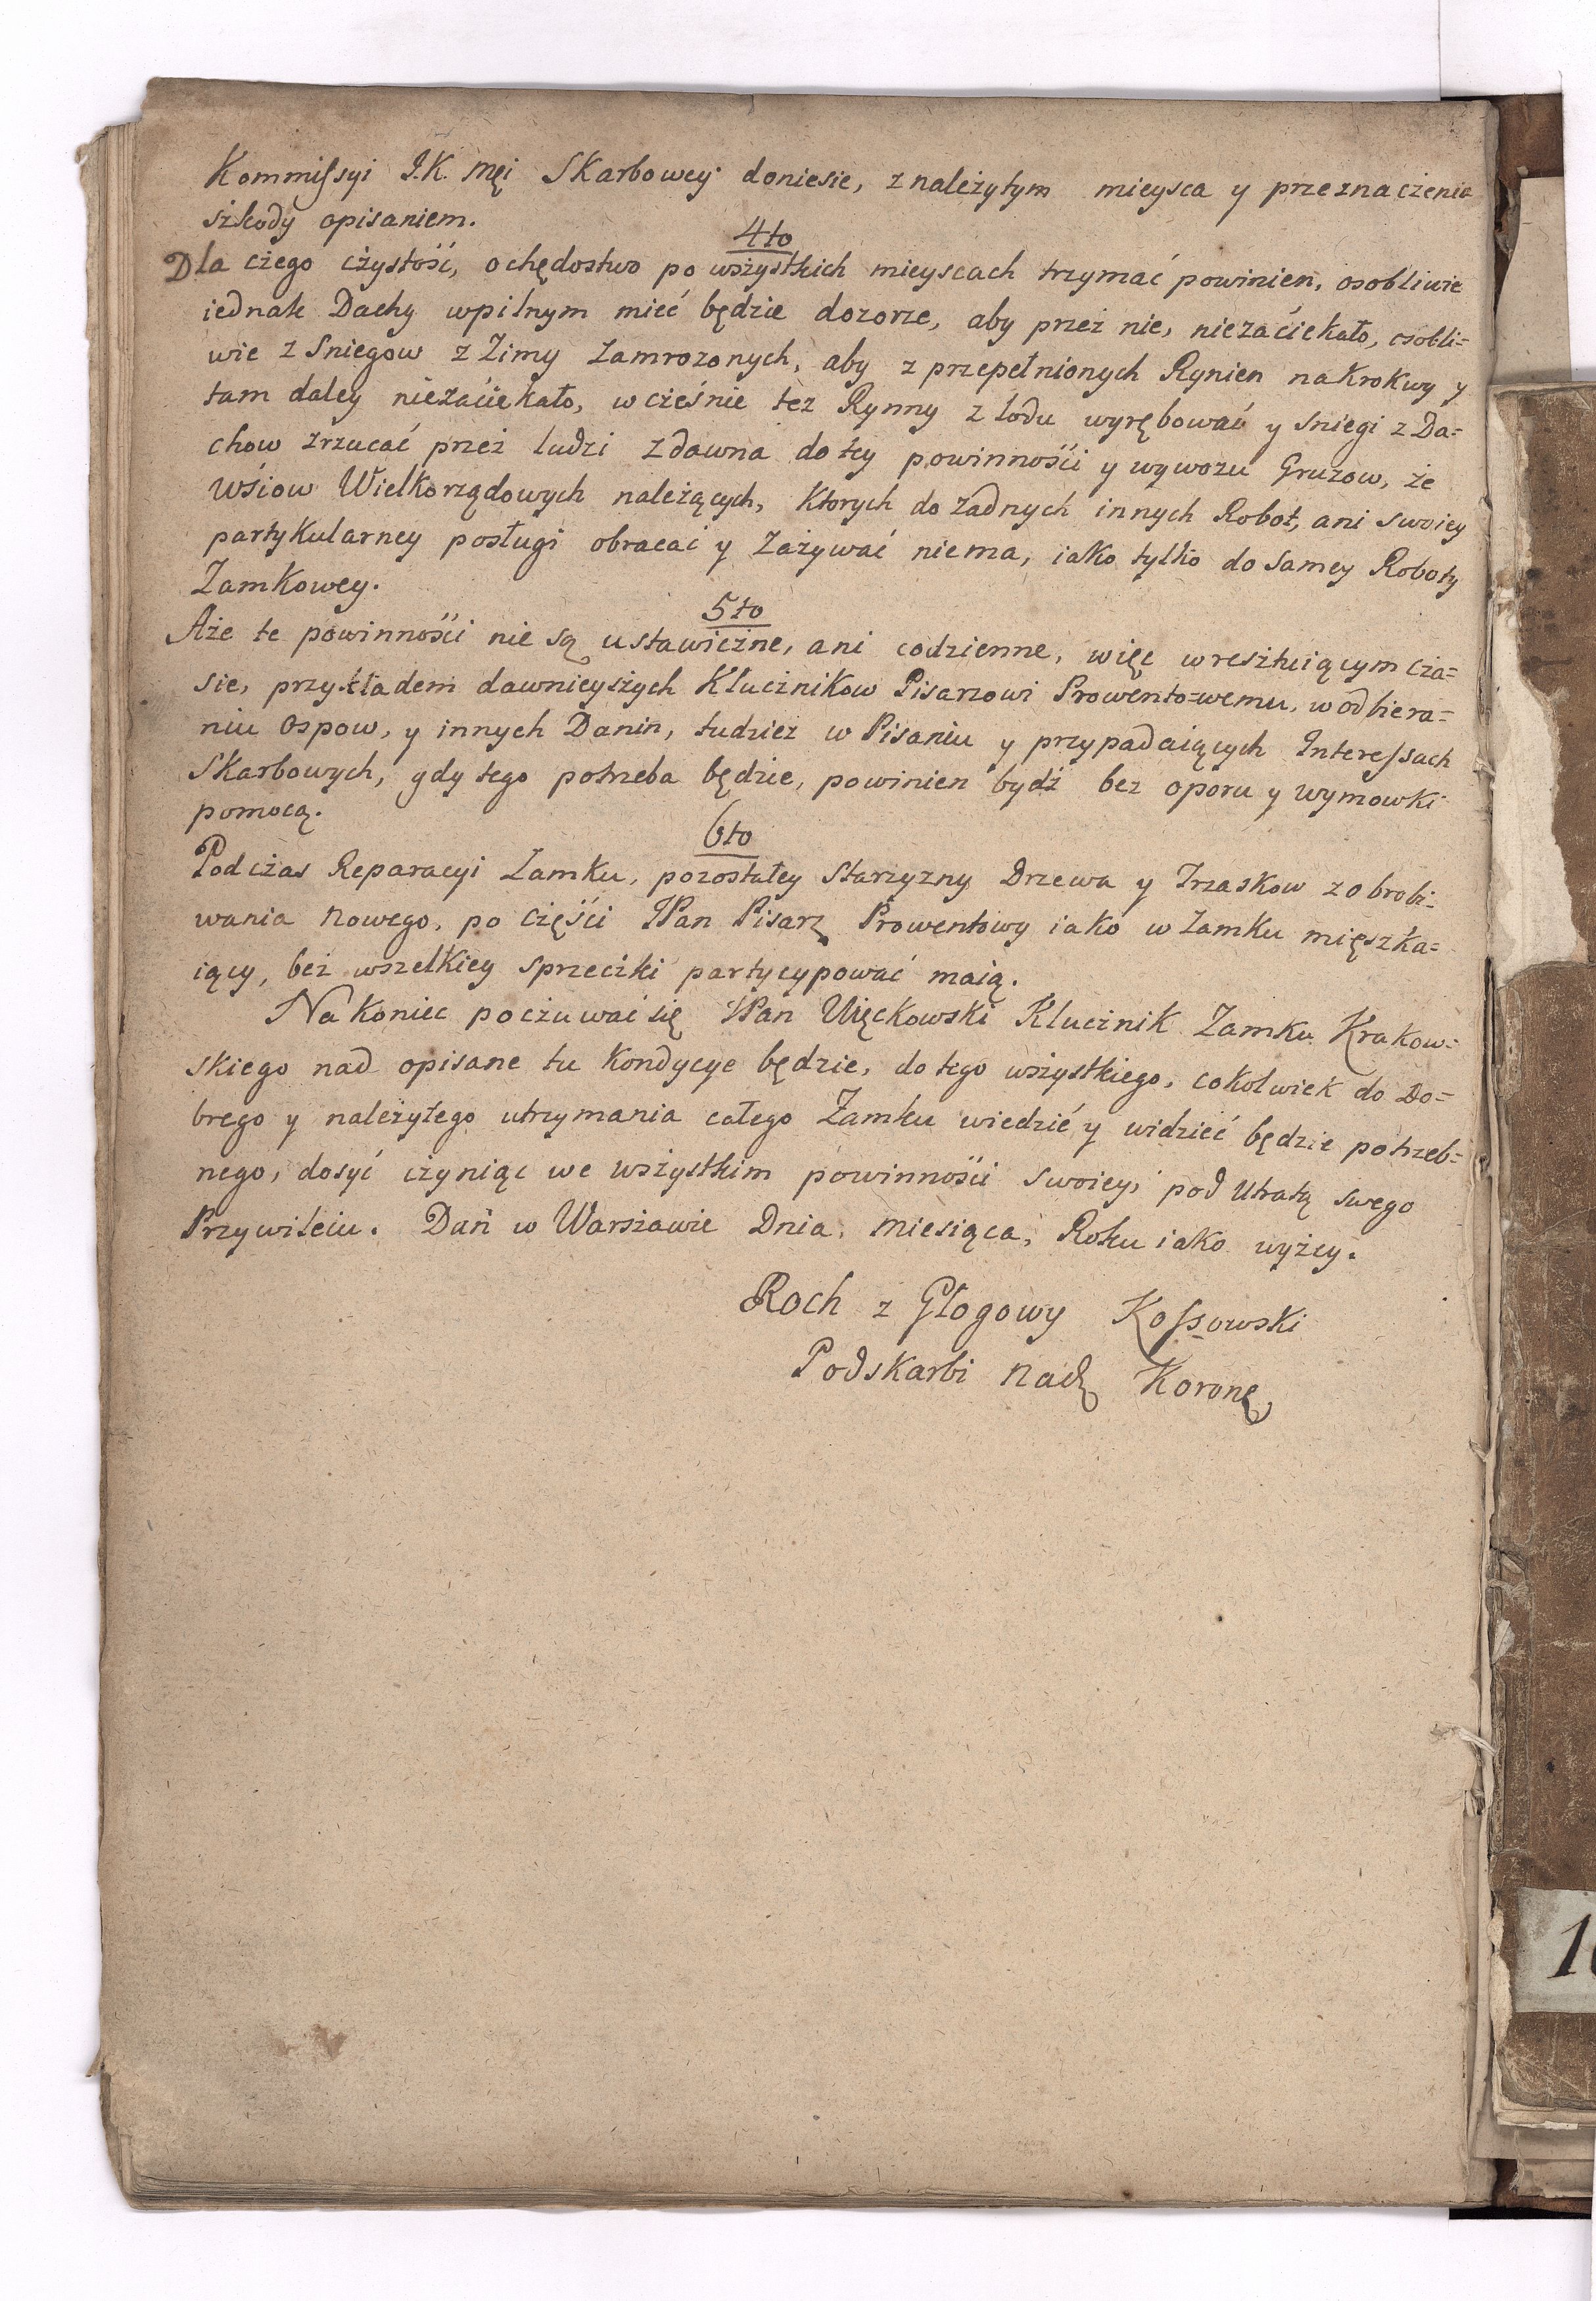 Kommissyi J.K. Męi Skarbowey doniesie, z należytym mieysca y przeznaczenia
szkody opisaniem.
4to
Dla czego czystość, ochędostwo po wszystkich mieyscach trzymać powinien, osobliwie
iednak Dachy w pilnym mieć będzie dozorze, aby przez nie, niezaciekało, osobli=
wie z Sniegow z Zimy zamrozonych, aby z przepełnionych Rynien na Krokwy y
tam daley niezaciekało, wcześnie tez Rynny z lodu wyrębować y Sniegi z Da=
chow zrzucać przez ludzi zdawna do tey powinności y wywozu Gruzow, ze
Wsiow Wielkorządowych należących, Ktorych do zadnych innych Robot, ani swoiey
partykularney posługi obracać y Zażywać niema, iako tylko do Samey Roboty
Zamkowey.
5to
Aże te powinności nie są ustawiczne, ani codzienne, więc w resztuiącym cza=
sie, przykładem dawnieyszych Klucznikow Pisarzowi Prowento=wemu, w odbiera=
niu Ospow, y innych Danin, tudziez w Pisaniu y przypadaiących Interessach
Skarbowych, gdy tego potrzeba będzie, powinien bydź bez oporu y wymowki
pomocą.
6to
Podczas Reparacyi Zamku, pozostałey Starzyzny Drzewa y Trzaskow z obrobi=
wania nowego, po części JPan Pisarz Prowentowy iako w Zamku mięszka=
iący, bez wszelkiey sprzeczki partycypować maią.
Na koniec poczuwać się JPan Więckowski Klucznik Zamku Krakow=
skiego nad opisane tu kondycye będzie, do tego wszystkiego, cokolwiek do Do=
brego y należytego utrzymania całego Zamku wiedzić y widzieć będzie potrzeb=
nego, dosyć czyniąc we wszystkim powinności swoiey, pod Utratą swego
Przywileiu. Dań w Warszawie Dnia, Miesiąca, Roku iako wyżey.
Roch z Głogowy Kossowski
Podskarbi Nadꝫ Koronꝫ
1